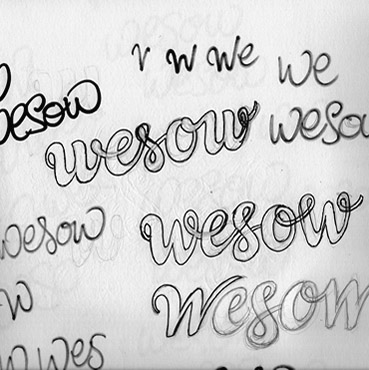 v w we we
wesow
wesow wesow
wesow
wesow
w
wesow
wes